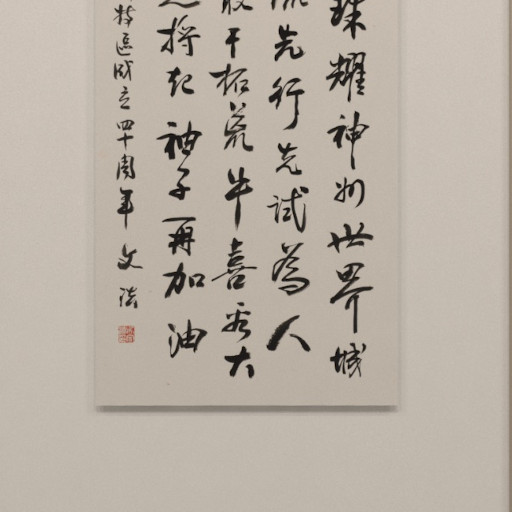 珠耀神州世界城
流先行先试为人
敢干拓荒牛喜看大
捋起袖子再加油
特区成立四十周年 文